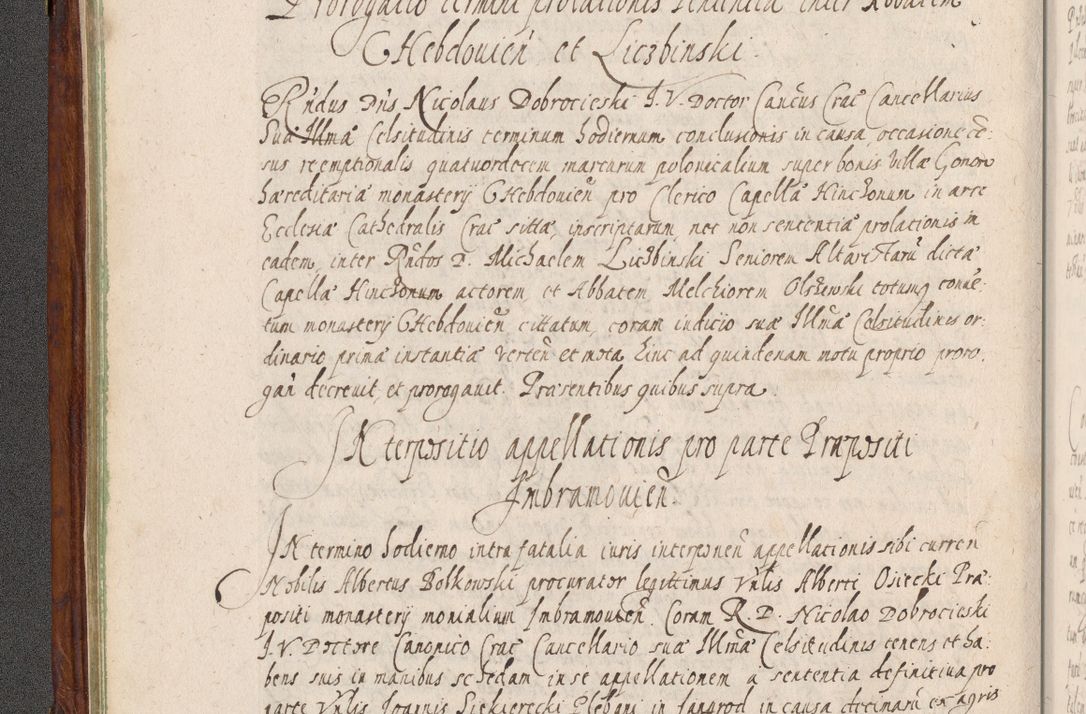 Prorogatio termini prolationis sententiæ inter Abbatem
CHebdouien̄ et Liczbinski.
Rn̄dus Dn̄s Nicolaus Dobrocieski I. V. Doctor Canc̄us Crac̄ Cancellarius
Suæ Illmæ Celsitudinis terminum hodiernum conclusionis in causa, occasione cē:
sus reemptionalis quatuordecem marcarum polonicalium super bonis Villæ Gonon
hæreditariæ monastery CHebdouien̄ pro Clerico Capellæ Hinczonum in arce
Ecclesiæ Cathedralis Crac̄ sittæ, inscriptarum, nec non sententiæ prolationis in
eadem, inter Rn̄dos D. Michaelem Liczbinski Seniorem Altaristarū dictæ
Capellæ Hinczonum actorem, et Abbatem Melchiorem Olszewski totumq conuē:
tum monastery CHebdouien̄ cittatum, coram iudicio suæ Illmæ Celsitudinis or:
dinario primæ instantiæ verten̄ et mota hinc ad quindenam motu proprio proro,
gan̄ decreuit, et prorogauit. Præsentibus quibus supra.
INterpositio appellationis pro parte Præpositi
Imbramouien̄.
IN termino hodierno intra fatalia iuris interponen̄ appellationis sibi curren̄
Nobilis Albertus Bolkowski procurator legittimus Vn̄lis Alberti Osiecki Præ:
positi monastery monialium Imbramouien̄. Coram R D. Nicolao Dobrocieski
I. V. Doctore Canonico Crac̄ Cancellario suæ Illmæ Celsitudinis tenens et ha:
bens suis in manibus schedam in se appellationem a sententia definitiua pro
parte Vn̄lis Joannis Siekierecki Plebani in Jangrod in causa decimarū ex agris